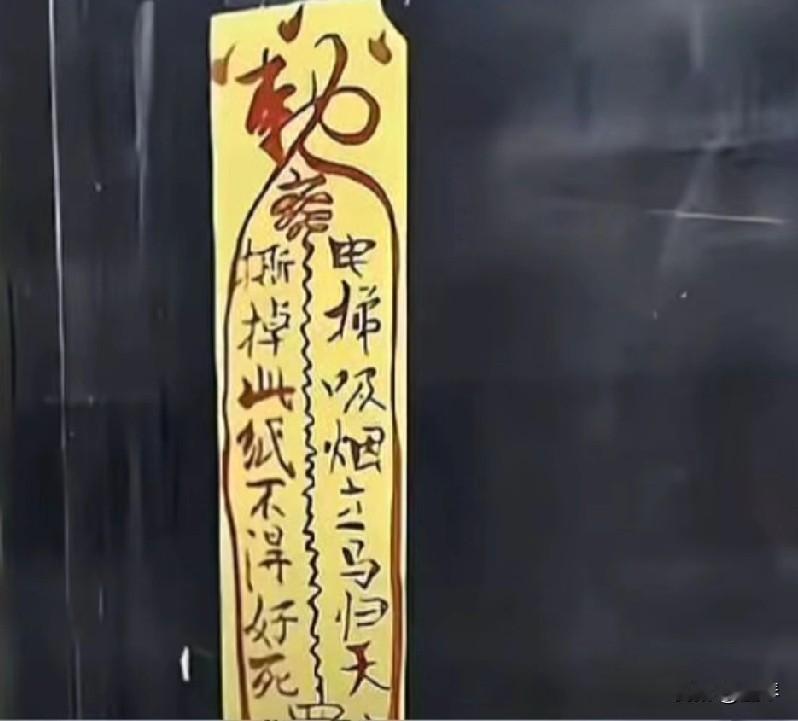 敕
电梯吸烟立马归天
撕掉此纸不得好死